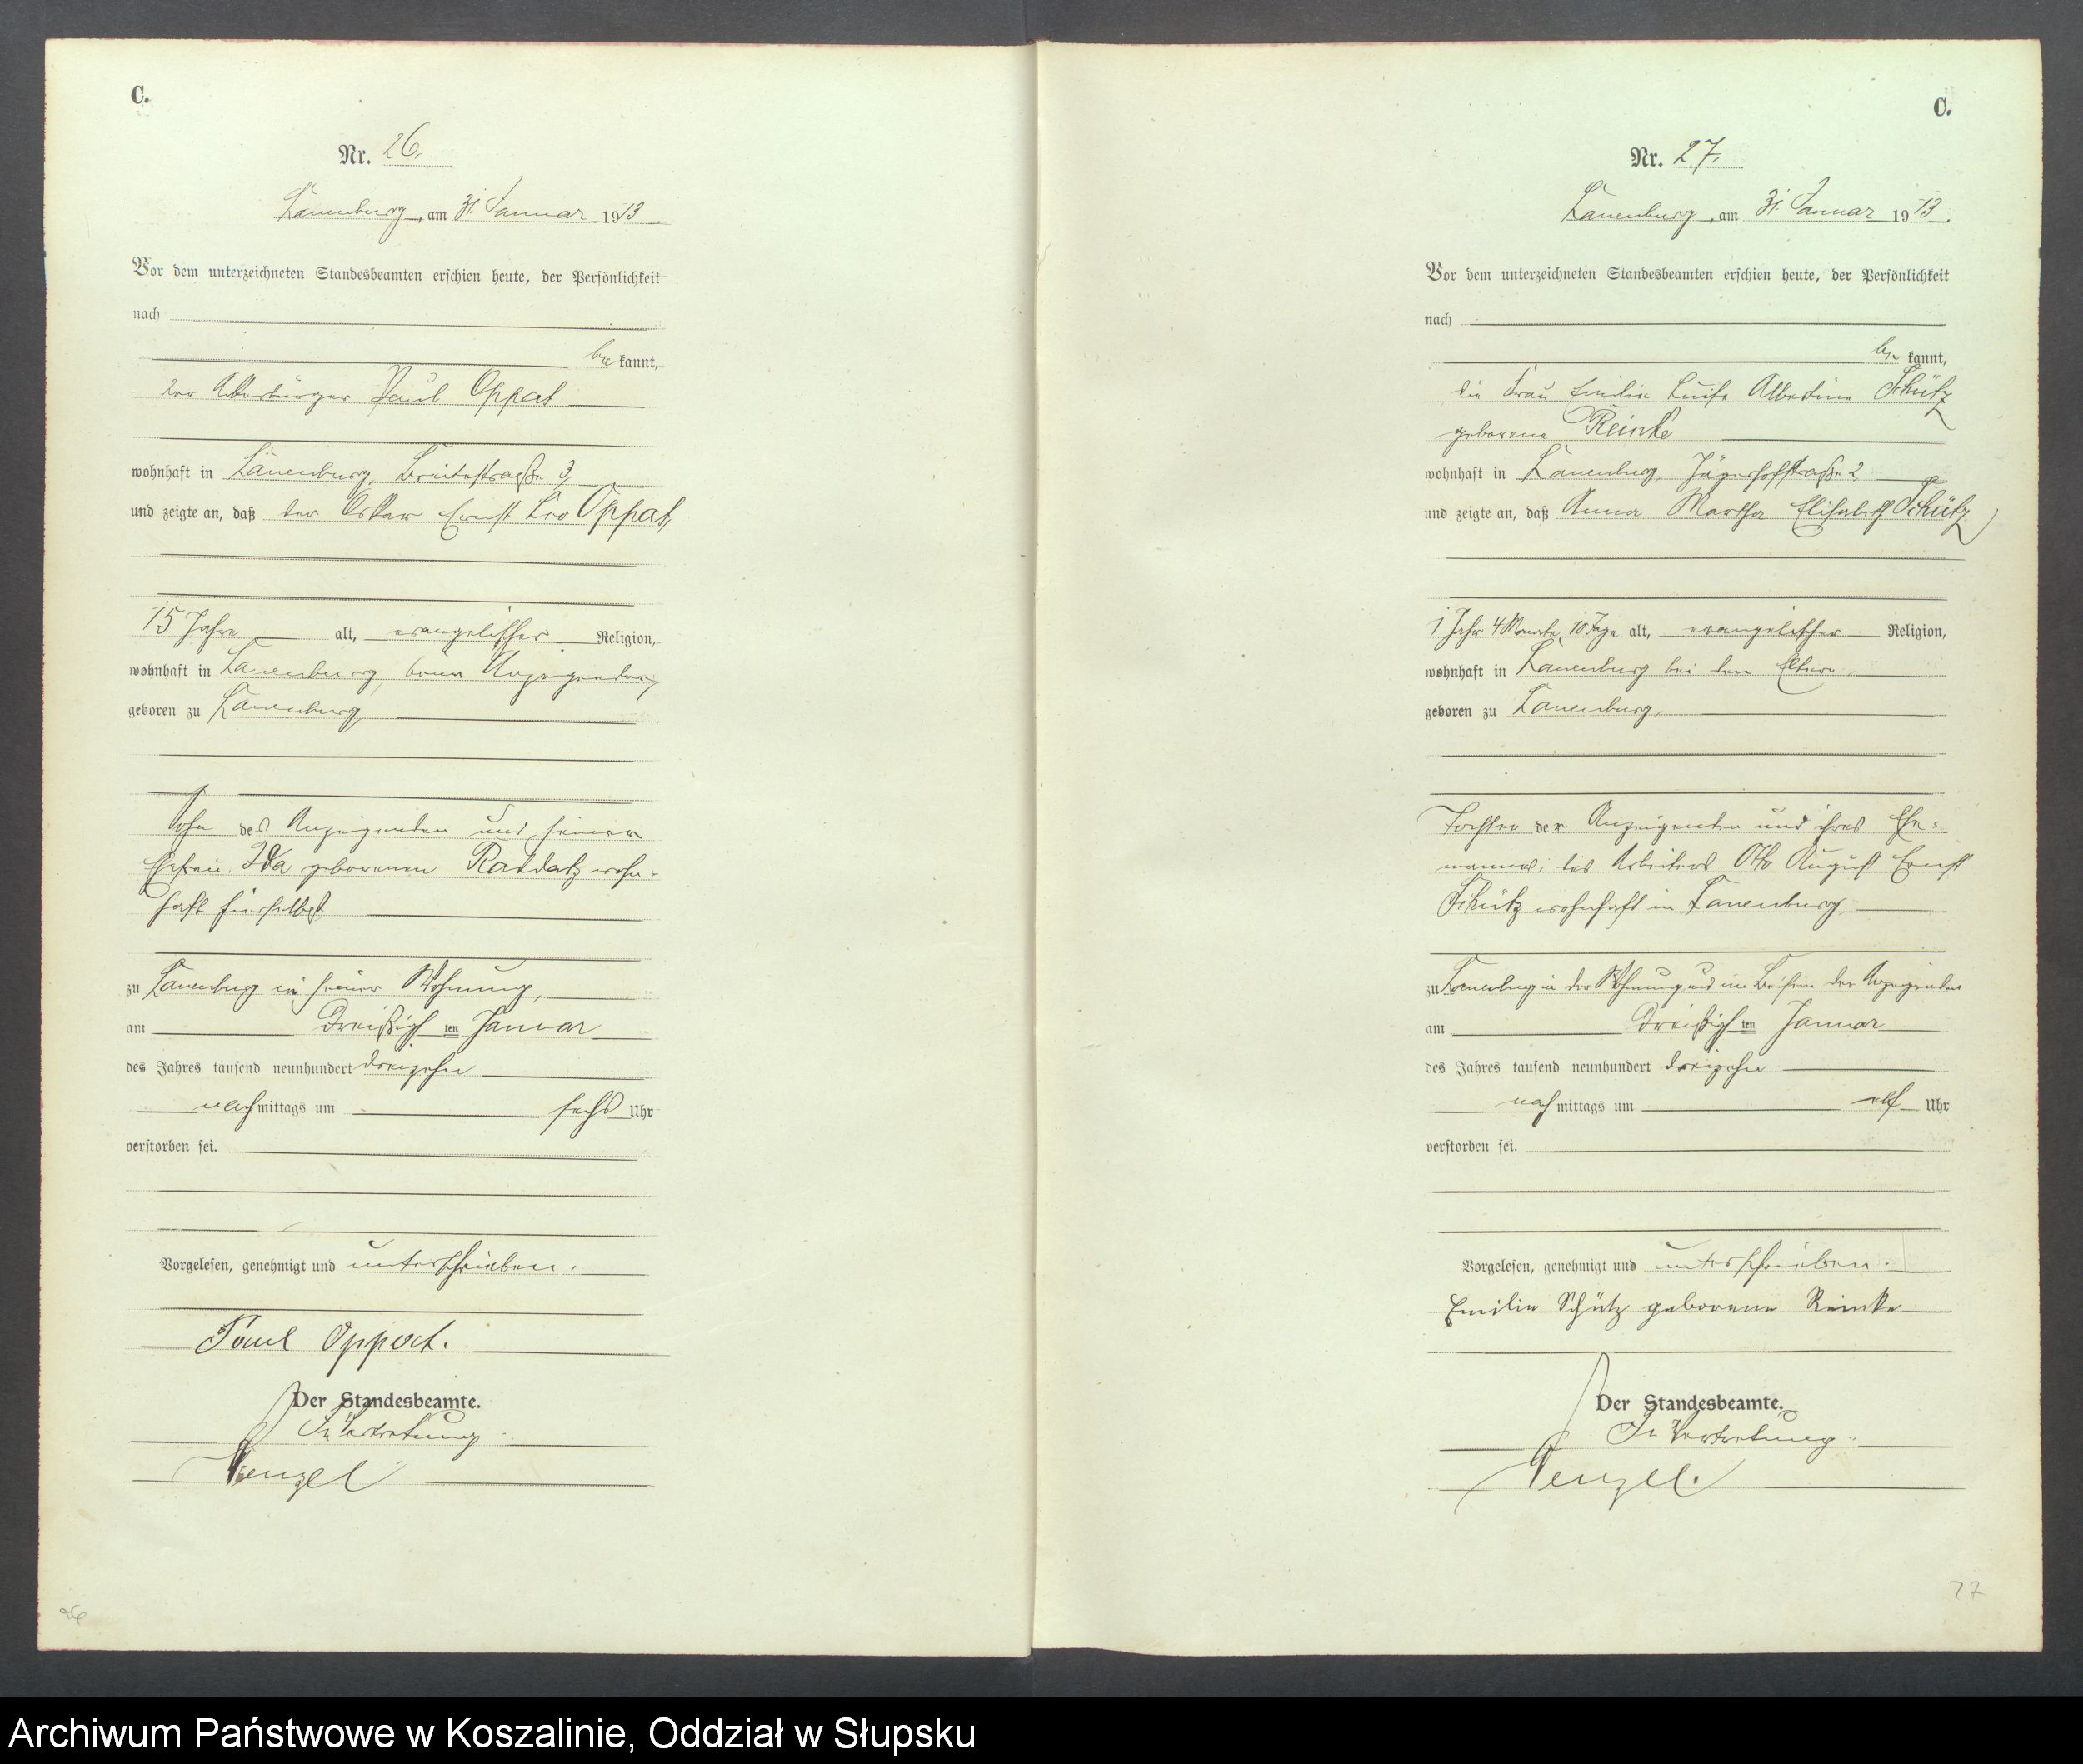 C.
Nr. 26.
Lauenburg, am 31. Januar 1913.
Vor dem unterzeichneten Standesbeamten erschien heute, der Persönlichkeit
nach
be kannt,
der Ackerbürger Paul Oppat
wohnhaft in Lauenburg, Breitestraße 3,
und zeigte an, daß der Oskar Ernst Leo Oppat,
15 Jahre alt, evangelischer Religion,
wohnhaft in Lauenburg, beim Anzeigenden,
geboren zu Lauenburg
Sohn des Anzeigenden und seiner
Ehefrau Ida geborenen Raddatz wohn-
haft hierselbst
zu Lauenburg in seiner Wohnung,
am Dreißigsten Januar
des Jahres tausend neunhundert dreizehn
nachmittags um sechs Uhr
verstorben sei.
Vorgelesen, genehmigt und unterschrieben.
Paul Oppat.
Der Standesbeamte.
In Vertretung
Wenzel
26
C.
Nr. 27.
Lauenburg, am 31. Januar 1913.
Vor dem unterzeichneten Standesbeamten erschien heute, der Persönlichkeit
nach
be kannt,
die Frau Emilie Luise Albertine Schütz
geborene Reinke
wohnhaft in Lauenburg, Jägerhofstraße 2,
und zeigte an, daß Anna Martha Elisabeth Schütz,
1 Jahr 4 Monate 10 Tage alt, evangelischer Religion,
wohnhaft in Lauenburg bei den Eltern
geboren zu Lauenburg,
Tochter der Anzeigenden und ihres Ehe-
mannes, des Arbeiters Otto August Ernst
Schütz wohnhaft in Lauenburg
zu Lauenburg in der Wohnung und im Beisein der Anzeigenden
am Dreißigsten Januar
des Jahres tausend neunhundert dreizehn
nachmittags um elf Uhr
verstorben sei.
Vorgelesen, genehmigt und unterschrieben.
Emilie Schütz geborene Reinke
Der Standesbeamte.
In Vertretung.
Wenzel.
27
Archiwum Państwowe w Koszalinie, Oddział w Słupsku